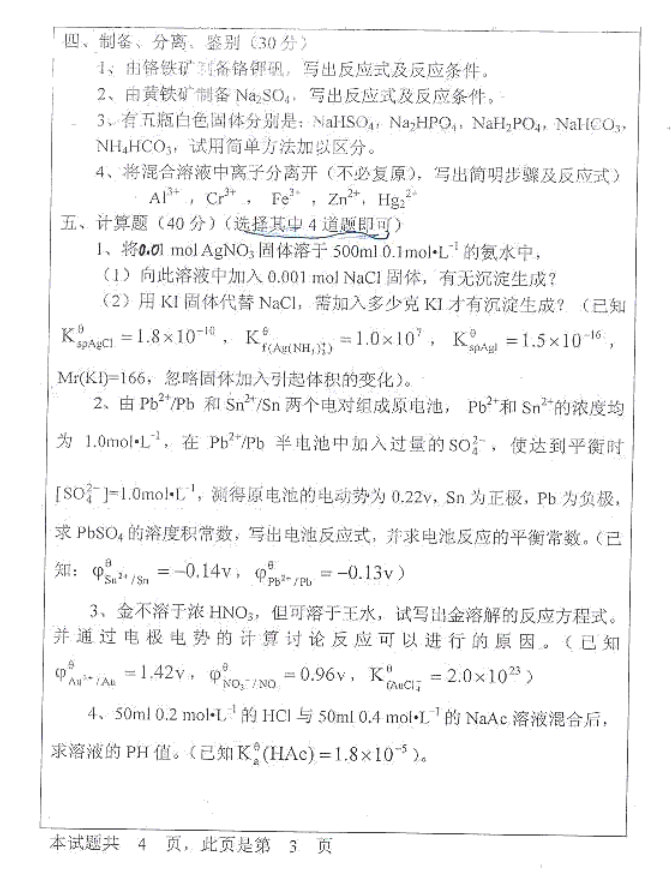 四、制备、分离、鉴别(30分)
1、由铬铁矿制备铬钾矾,写出反应式及反应条件。
2、由黄铁矿制备 Na₂SO₄,写出反应式及反应条件。
3、有五瓶白色固体分别是:NaHSO₄,Na₂HPO₄,NaH₂PO₄,NaHCO₃,
NH₄HCO₃,试用简单方法加以区分。
4、将混合溶液中离子分离开(不必复原),写出简明步骤及反应式)
Al³⁺,Cr³⁺,Fe³⁺,Zn²⁺,Hg₂²⁺
五、计算题(40分)(选择其中4道题即可)
1、将0.01 mol AgNO₃固体溶于 500ml 0.1mol•L⁻¹的氨水中,
(1)向此溶液中加入 0.001 mol NaCl 固体,有无沉淀生成?
(2)用 KI 固体代替 NaCl,需加入多少克 KI 才有沉淀生成?(已知
K^θ_spAgCl =1.8×10⁻¹⁰,K^θ_f(Ag(NH₃)₂⁺) =1.0×10⁷,K^θ_spAgI =1.5×10⁻¹⁶,
Mr(KI)=166,忽略固体加入引起体积的变化)。
2、由 Pb²⁺/Pb 和 Sn²⁺/Sn 两个电对组成原电池,Pb²⁺和 Sn²⁺的浓度均
为 1.0mol•L⁻¹,在 Pb²⁺/Pb 半电池中加入过量的 SO₄²⁻,使达到平衡时
[SO₄²⁻]=1.0mol•L⁻¹,测得原电池的电动势为 0.22v,Sn 为正极,Pb 为负极,
求 PbSO₄ 的溶度积常数,写出电池反应式,并求电池反应的平衡常数。(已
知:φ^θ_Sn²⁺/Sn =−0.14v,φ^θ_Pb²⁺/Pb =−0.13v)
3、金不溶于浓 HNO₃,但可溶于王水,试写出金溶解的反应方程式。
并通过电极电势的计算讨论反应可以进行的原因。(已知
φ^θ_Au³⁺/Au =1.42v,φ^θ_NO₃⁻/NO =0.96v,K^θ_fAuCl₄⁻ =2.0×10²³)
4、50ml 0.2 mol•L⁻¹的 HCl 与 50ml 0.4 mol•L⁻¹的 NaAc 溶液混合后,
求溶液的 PH 值。(已知K^θ_a(HAc)=1.8×10⁻⁵)。
本试题共 4 页,此页是第 3 页